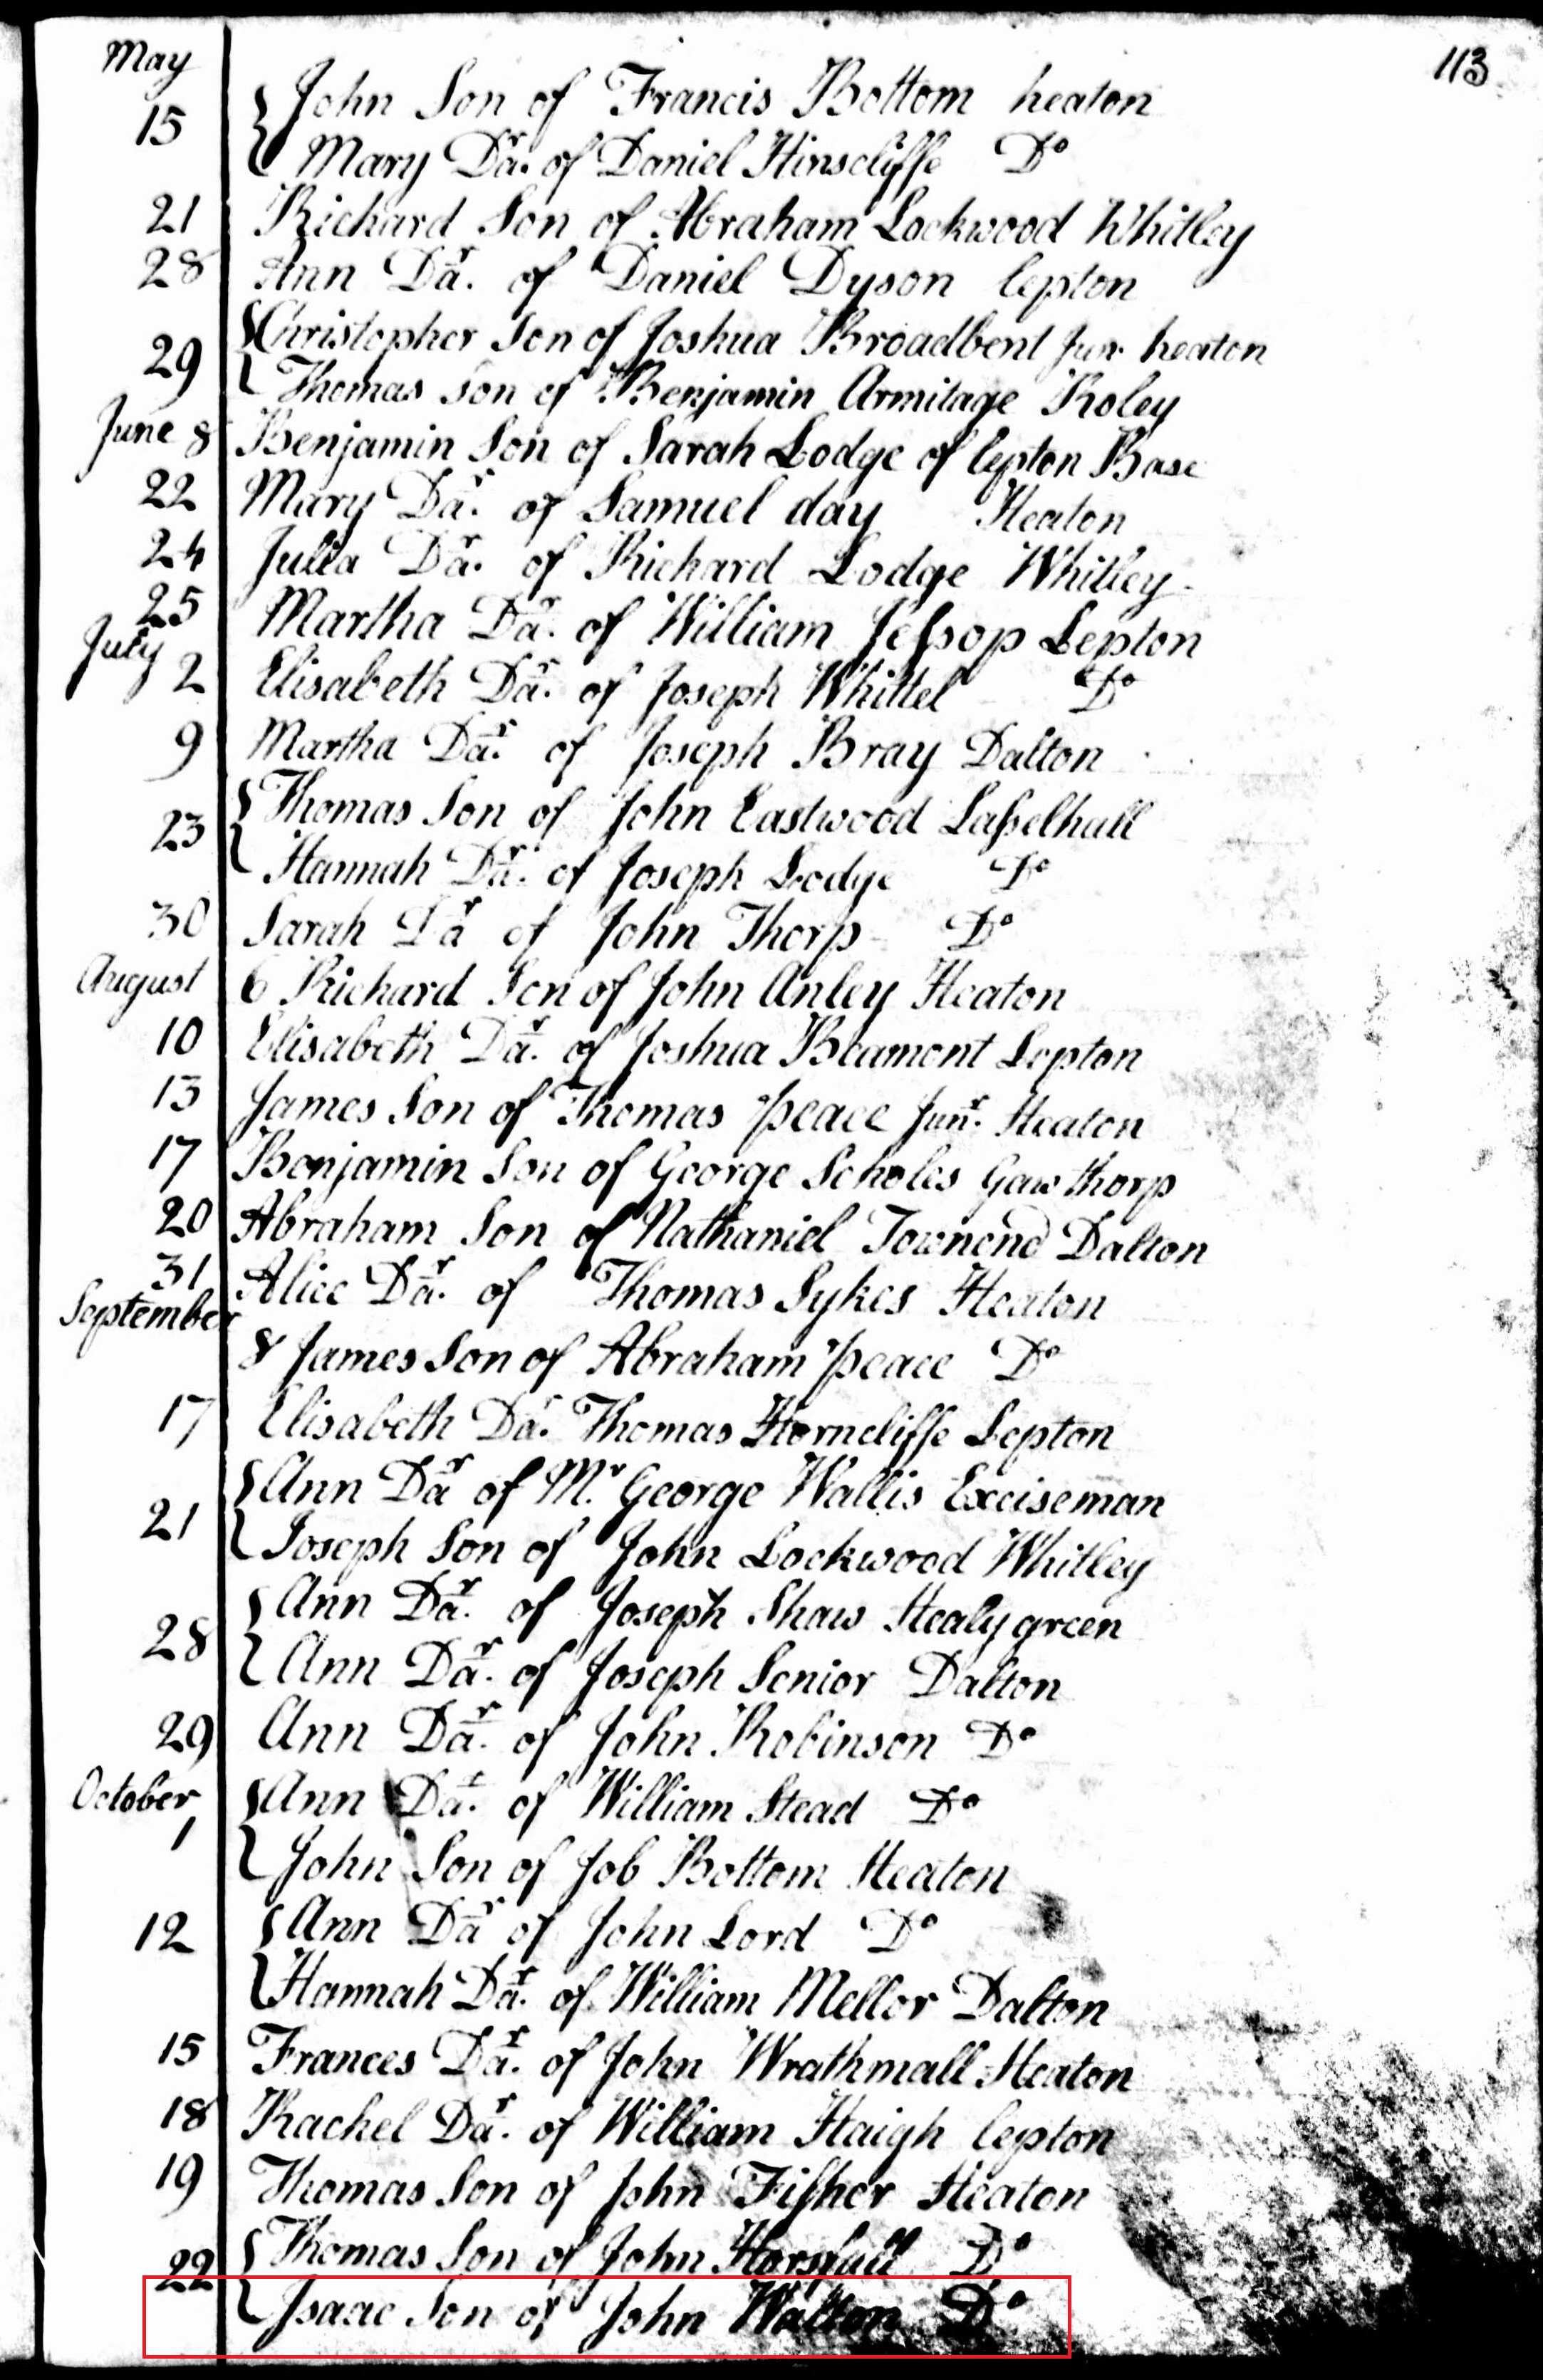 May
113
15 { John Son of Francis Bottom heaton
{ Mary Dar. of Daniel Hinscliffe Do
21 Richard Son of Abraham Lockwood Whitley
28 Ann Dar. of Daniel Dyson lepton
29 { Christopher Son of Joshua Broadbent Junr. heaton
{ Thomas Son of Benjamin Armitage Roley
June 8 Benjamin Son of Sarah Lodge of lepton Base
22 Mary Dar. of Samuel day Heaton
24 Julia Dar. of Richard Lodge Whitley
25 Martha Dar. of William Jeſsop Lepton
July 2 Elisabeth Dar. of Joseph Whittel Do
9 Martha Dar. of Joseph Bray Dalton
23 { Thomas Son of John Eastwood Laſselhall
{ Hannah Dar. of Joseph Lodge Do
30 Sarah Dar of John Thorp Do
August 6 Richard Son of John Anley Heaton
10 Elisabeth Dar. of Joshua Beamont Lepton
13 James Son of Thomas peace Junr. Heaton
17 Benjamin Son of George Scholes Gawthorp
20 Abraham Son of Nathaniel Townend Dalton
31 Alice Dar. of Thomas Sykes Heaton
September
8 James Son of Abraham peace Do
17 Elisabeth Dar. Thomas Horncliffe Lepton
21 { Ann Dar of Mr. George Wallis Exciseman
{ Joseph Son of John Lockwood Whitley
28 { Ann Dar. of Joseph Shaw Healygreen
{ Ann Dar. of Joseph Senior Dalton
29 Ann Dar. of John Robinson Do
October 1 { Ann Dar. of William Stead Do
{ John Son of Job Bottom Heaton
12 { Ann Dar of John Lord Do
{ Hannah Dar. of William Mellor Dalton
15 Frances Dar. of John Wrathmall Heaton
18 Rachel Dar. of William Haigh lepton
19 Thomas Son of John Fiſher Heaton
22 { Thomas Son of John Horsfall Do
{ Isaac Son of John Walton Do